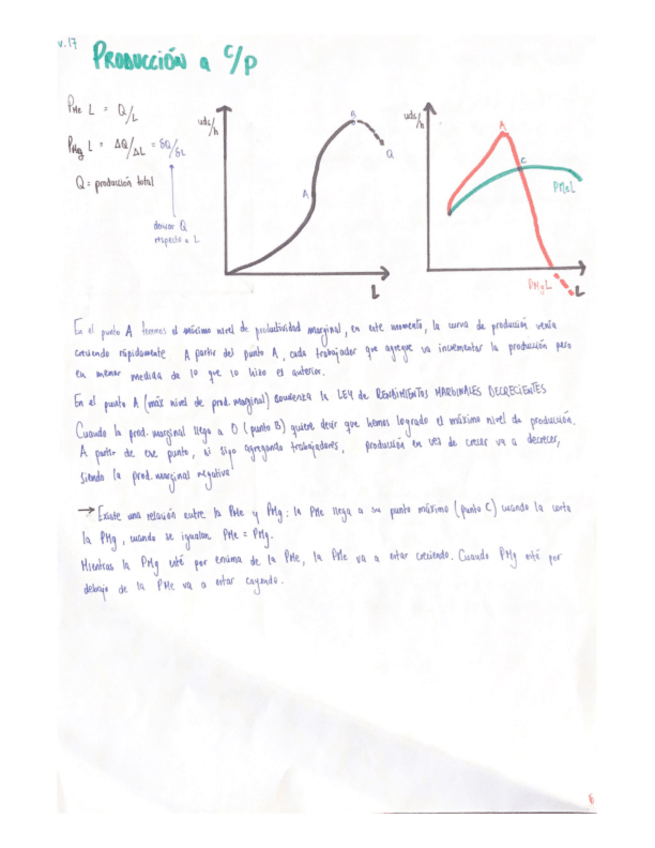 v.17
PRODUCCIÓN a c/p
PMe L = Q/L
PMg L = ΔQ/ΔL = δQ/δL
Q = producción total
derivar Q
respecto a L
uds/h
A
B
Q
L
uds/h
A
C
PMeL
PMgL
L
En el punto A tenemos el máximo nivel de productividad marginal, en este momento, la curva de producción venía
creciendo rápidamente. A partir del punto A, cada trabajador que agregue va incrementar la producción pero
en menor medida de lo que lo hizo el anterior.
En el punto A (máx nivel de prod. marginal) comienza la LEY de RENDIMIENTOS MARGINALES DECRECIENTES
Cuando la prod. marginal llega a 0 (punto B) quiere decir que hemos logrado el máximo nivel de producción.
A partir de ese punto, si sigo agregando trabajadores, producción en vez de crecer va a decrecer,
siendo la prod. marginal negativa
→ Existe una relación entre la PMe y PMg: la PMe llega a su punto máximo (punto C) cuando la corta
la PMg, cuando se igualan PMe = PMg.
Mientras la PMg esté por encima de la PMe, la PMe va a estar creciendo. Cuando PMg esté por
debajo de la PMe va a estar cayendo.
6